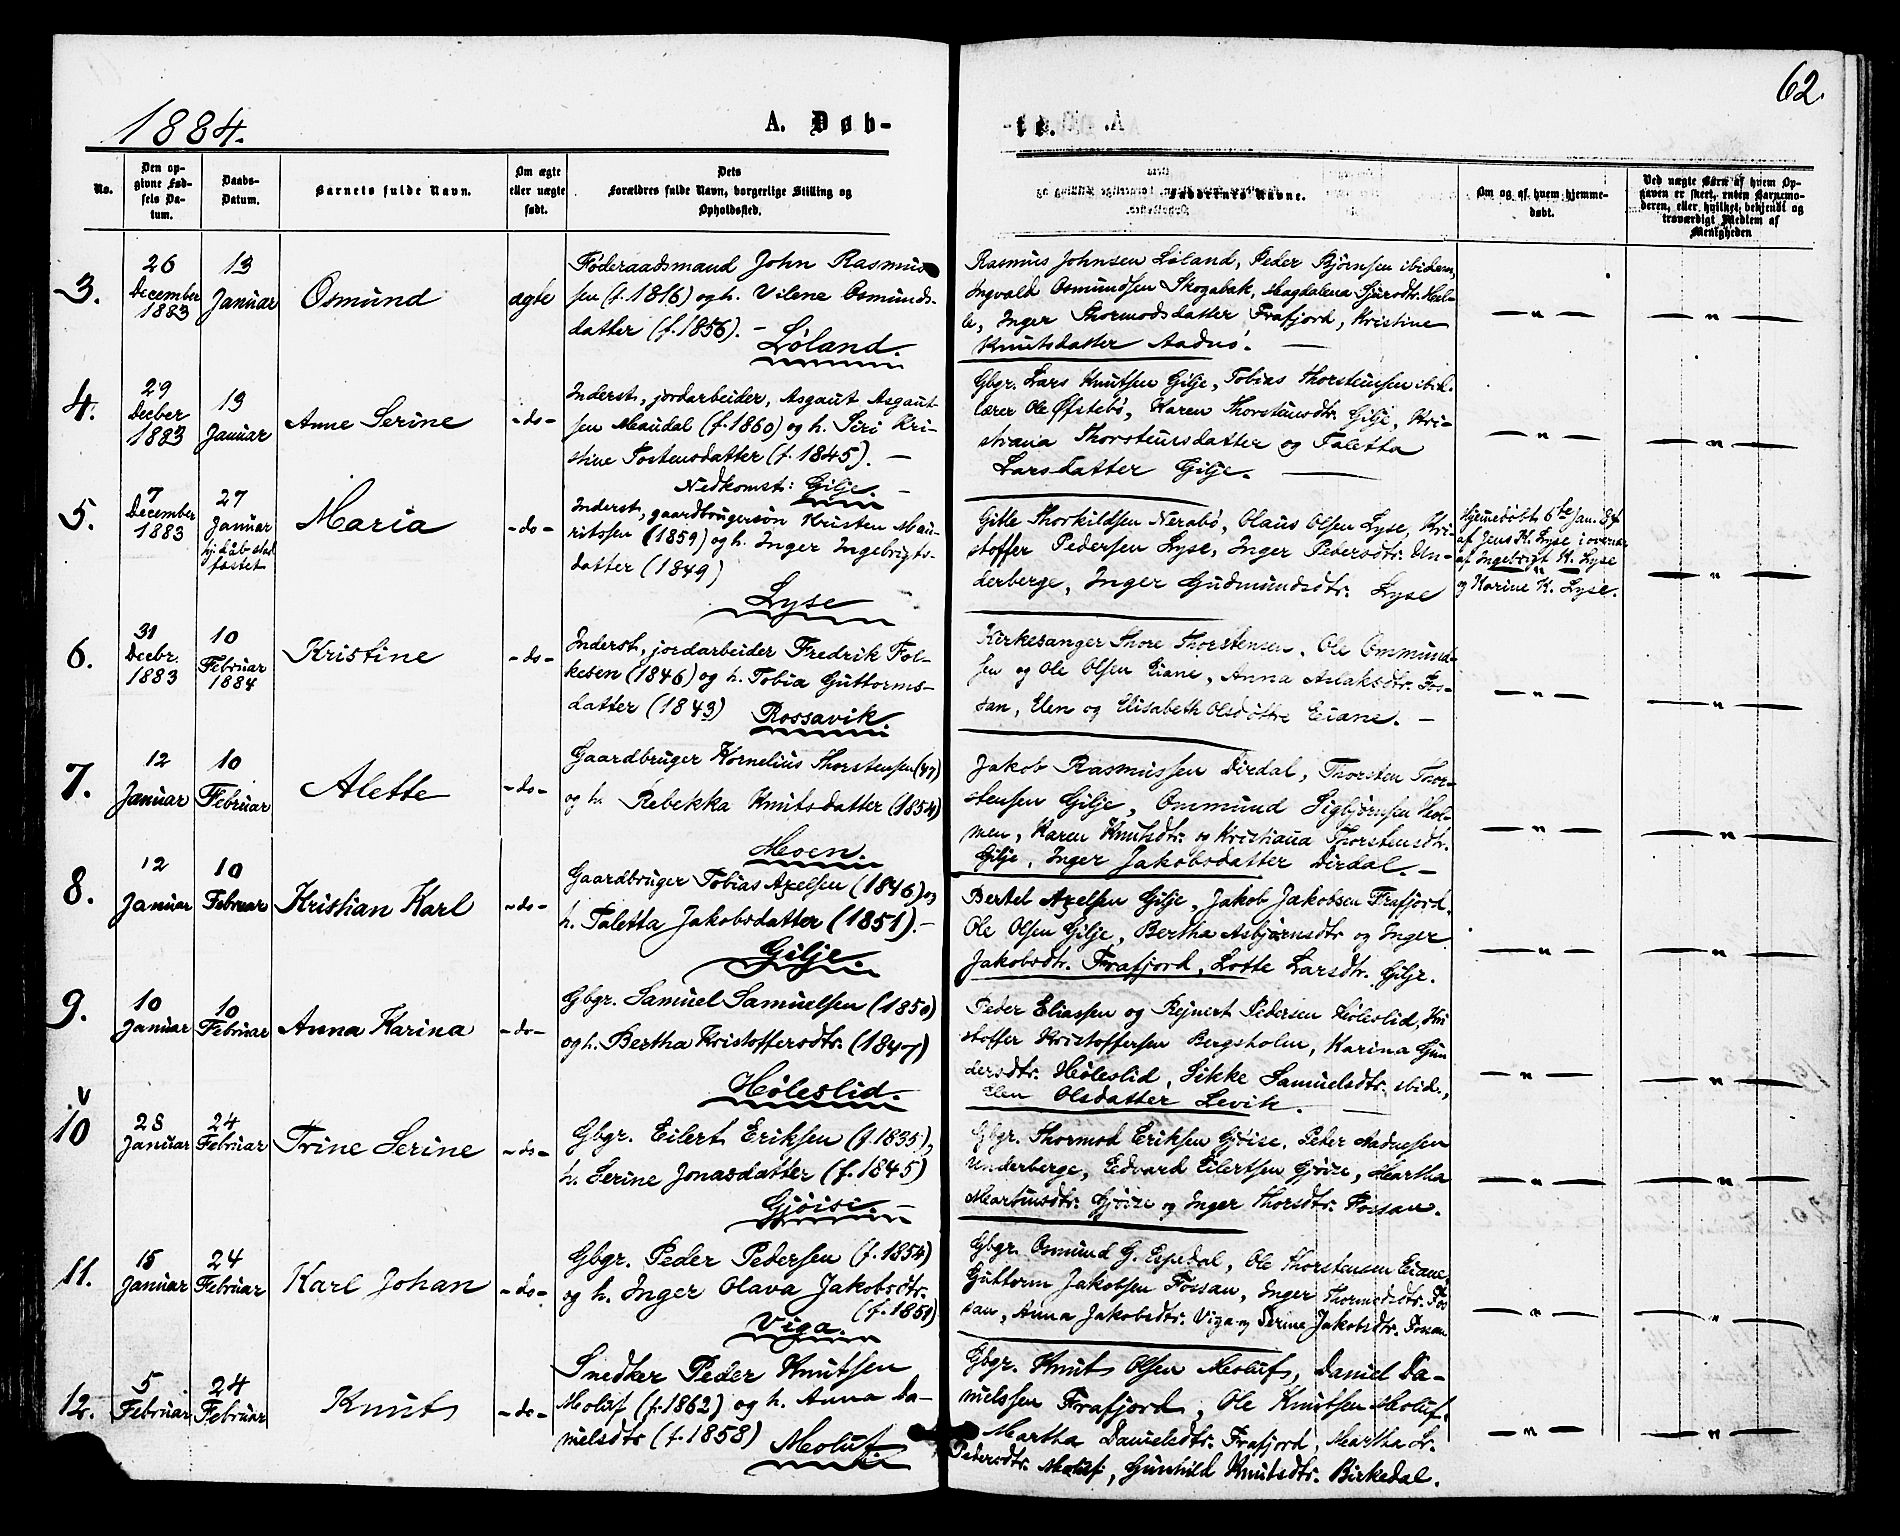 62.
1884.
A. Døb-
te.
No.
Den op-
givne Fød-
sels Da-
tum.
Daabs-
Datum.
Barnets fulde Navn.
Om ægte
eller uægte
født.
Dets
Forældres fulde Navn, borgerlige Stilling og
Opholdssted.
Faddernes Navne.
Om og af hvem hjemme-
døbt.
Ved uægte Børn af hvem Op-
gaven er skeet, enten Barnemo-
deren, eller hvilket bekjendt og
troværdigt Medlem af
Menigheden
3.
26
December
1883
13
Januar
Osmund
ægte
Føderaadsmand John Rasmus
sen (f. 1816) og h. Vilene Osmunds-
datter (f. 1856). —
Løland.
Rasmus Johnsen Løland, Peder Bjørnsen ibidem,
Ingvald Osmundsen Skogabak, Magdalena Sjurсdtr. Hel-
le, Inger Thormodsdatter Frafjord, Kristine
Knutsdatter Aadnø. —
— " —
— " —
4.
29
Decber
1883
13
Januar
Anne Serine
- do -
Inderst, jordarbeider, Asgaut Asgaut-
sen Maudal (f. 1860) og h. Siri Kri-
stine Tostensdatter (f. 1845). —
Nedkomst: Gilje. —
Gbgr. Lars Knutsen Gilje, Tobias Thorstensen ibid.
lærer Ole Øfstebø, Karen Thorstensdtr. Gilje, Kri-
stiana Thorstensdatter og Taletta
Larsdatter Gilje. —
— " —
— " —
5.
7
December
1883
27
Januar
hj. døb stad
fæstet
Maria
- do -
Inderst, gaardbrugersøn Kristen Mau-
ritssen (1859) og h. Inger Ingebrigts-
datter (1849)
Lyse
Gitle Thorkildsen Nerabø, Olaus Olsen Lyse, Kri-
stoffer Pedersen Lyse, Inger Pedersdtr. Un-
derberge, Inger Gudmundsdtr. Lyse
Hjemedøbt 6te Jan. 84
af Jens K. Lyse i overvær
af Ingebrigt K. Lyse
og Karine K. Lyse.
— " —
6.
31
Decbr.
1883
10
Februar
1884
Kristine
- do -
Inderst, jordarbeider Fredrik Fol-
kesen (1846) og h. Tobia Guttorms-
datter (1843)
Rossavik.
Kirkesanger Thore Thorstensen, Ole Ommund-
sen og Ole Olsen Eiane, Anna Aslaksdtr. Fos-
san, Elen og Elisabeth Olsdøttre Eiane. —
— " —
— " —
7.
12
Januar
10
Februar
Alette
- do -
Gaardbruger Kornelius Thorstensen (47)
og h. Rebekka Knutsdatter (1854)
Moen.
Jakob Rasmussen Dirdal, Thorsten Thor-
stensen Gilje, Ommund Sigbjørnsen Hol-
men, Karen Knutsdtr. og Kristiana Thorstensdtr.
Gilje, Inger Jakobsdatter Dirdal. —
— " —
— " —
8.
12
Januar
10
Februar
Kristian Karl
- do -
Gaardbruger Tobias Axelsen (1846) og
h. Taletta Jakobsdatter (1851). —
Gilje.
Bertel Axelsen Gilje, Jakob Jakobsen Frafjord,
Ole Olsen Gilje, Bertha Asbjørnsdtr og Inger
Jakobsdtr. Frafjord, Lotte Larsdtr. Gilje.
— " —
— " —
9.
10
Januar
10
Februar
Anna Karina
- do -
Gbgr. Samuel Samuelsen (1850)
og h. Bertha Kristoffersdtr. (1847)
Høleslid.
Peder Eliassen og Rejnert Pedersen Høleslid, Kri
stoffer Kristoffersen Bergsholm, Karina Gun
dersdtr. Høleslid, Sikke Samuelsdtr. ibid.,
Elen Olsdatter Levik. —
— " —
— " —
v
10
28
Januar
24
Februar
Trine Serine
- do -
Gbgr. Eilert Eriksen (f. 1835),
h. Serine Jonasdatter (f. 1845)
Gjøisi. —
Gbgr. Thormod Eriksen Gjøise, Peder Aadnesen
Underberge, Edvard Eilertsen Gjøise, Martha
Martinsdtr. Gjøise og Inger Thorsdtr. Fossan.
— " —
— " —
11.
15
Januar
24
Februar
Karl Johan
- do -
Gbgr. Peder Pedersen (f. 1854)
og h. Inger Olava Jakobsdtr.
(f. 1851)
Viga.
Gbgr. Osmund G. Espedal, Ole Thorstensen Eiane,
Guttorm Jakobsen Fossan, Inger Thormodsdtr. Fos
san, Anna Jakobsdtr. Viga og Serine Jakobsdtr. Fossan
— " —
— " —
12.
5
Februar
24
Februar
Knut
- do -
Snedker Peder Knutsen
Moluf (f. 1862) og h. Anna Da-
nielsdtr (f. 1858)
Moluf.
Gbgr. Knut Olsen Moluf, Daniel Da-
nielssen Frafjord, Ole Knutsen Moluf,
Martha Danielsdtr. Frafjord, Martha
Pedersdtr. Moluf, Gunhild Knutsdtr. Birkedal.
— " —
— " —